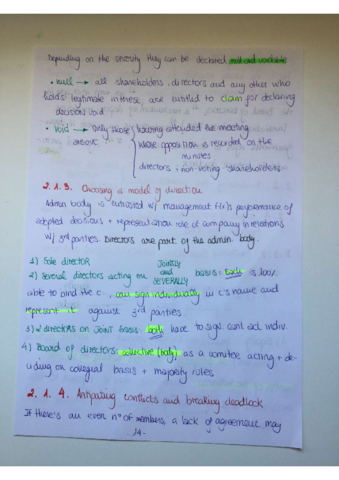 Depending on the severity they can be declared null and voidable
• null → all shareholders, directors and any other who
holds legitimate interest, are entitled to claim for declaring
decision void
• Void → only those having attended the meeting
whose opposition is recorded on the
minutes
directors + non-voting shareholders
2.1.3. Choosing a model of direction
Admin body is entrusted w/ management f(x)s, performance of
adopted decisions + representation role of company in relations
w/ 3rd parties. Directors are part of the admin. body.
1) Sole director
2) Several directors acting on JOINTLY and SEVERALLY basis: Each is
able to bind the c., can sign individually in c's name and
represent it against 3rd parties.
3) 2 directors on Joint basis: both have to sign, can't act indiv.
4) Board of directors: collective (body) as a comitee, acting + de-
ciding on collegial basis + majority rules
2.1.4. Anticipating conflicts and breaking deadlock
If there's an even nº of members, a lack of agreement may
14-